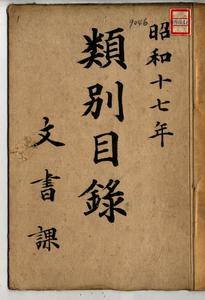 昭和十七年
類別目錄
文書課
9046
1